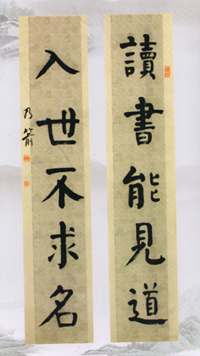 讀書能見道
入世不求名
乃箭